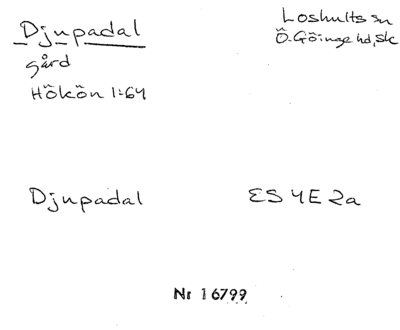 Djupadal
Loshults sn
Ö. Göinge hd, Sk
gård
Hökön 1:64
Djupadal
ES 4E 2a
Nr 16799